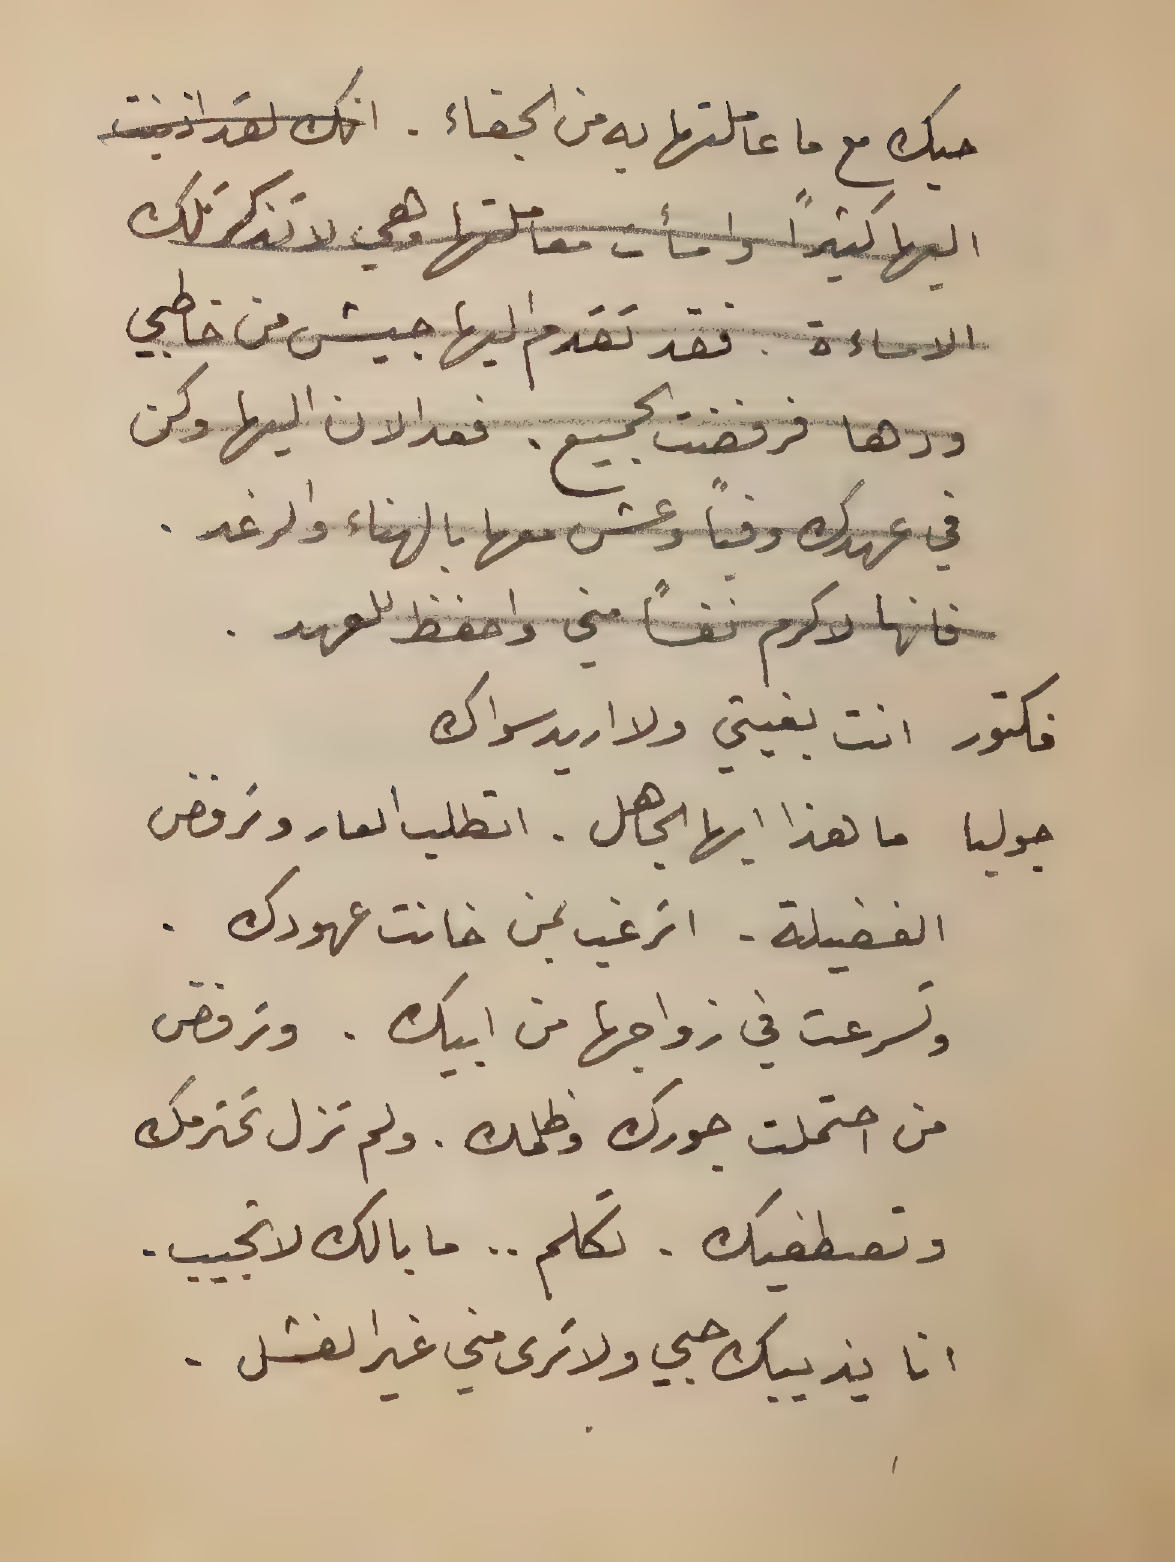 حبك مع ما عاملتها به من الجفاء . انك لقد اذنبت
اليها كثيراً واسأت معاملتها وهي لا تذكر تلك
الاساءة . فقد تقدم اليها جيش من خاطبي
ودها فرفضت الجميع . فعد الان اليها وكن
في عهدك وفياً وعش معها بالهناء والرغد .
فانها لاكرم نفساً مني واحفظ للعهد .
فكتور انت بغيتي ولا اريد سواك
جوليا ما هذا ايها الجاهل . اتطلب العار وترفض
الفضيلة . اترغب بمن خانت عهودك .
وتسرعت في زواجها من ابيك . وترفض
من احتملت جورك وظلمك . ولم تزل تحترمك
وتصطفيك . تكلم .. ما بالك لا تجيب .
انا يذيبك حبي ولا ترى مني غير الفشل .